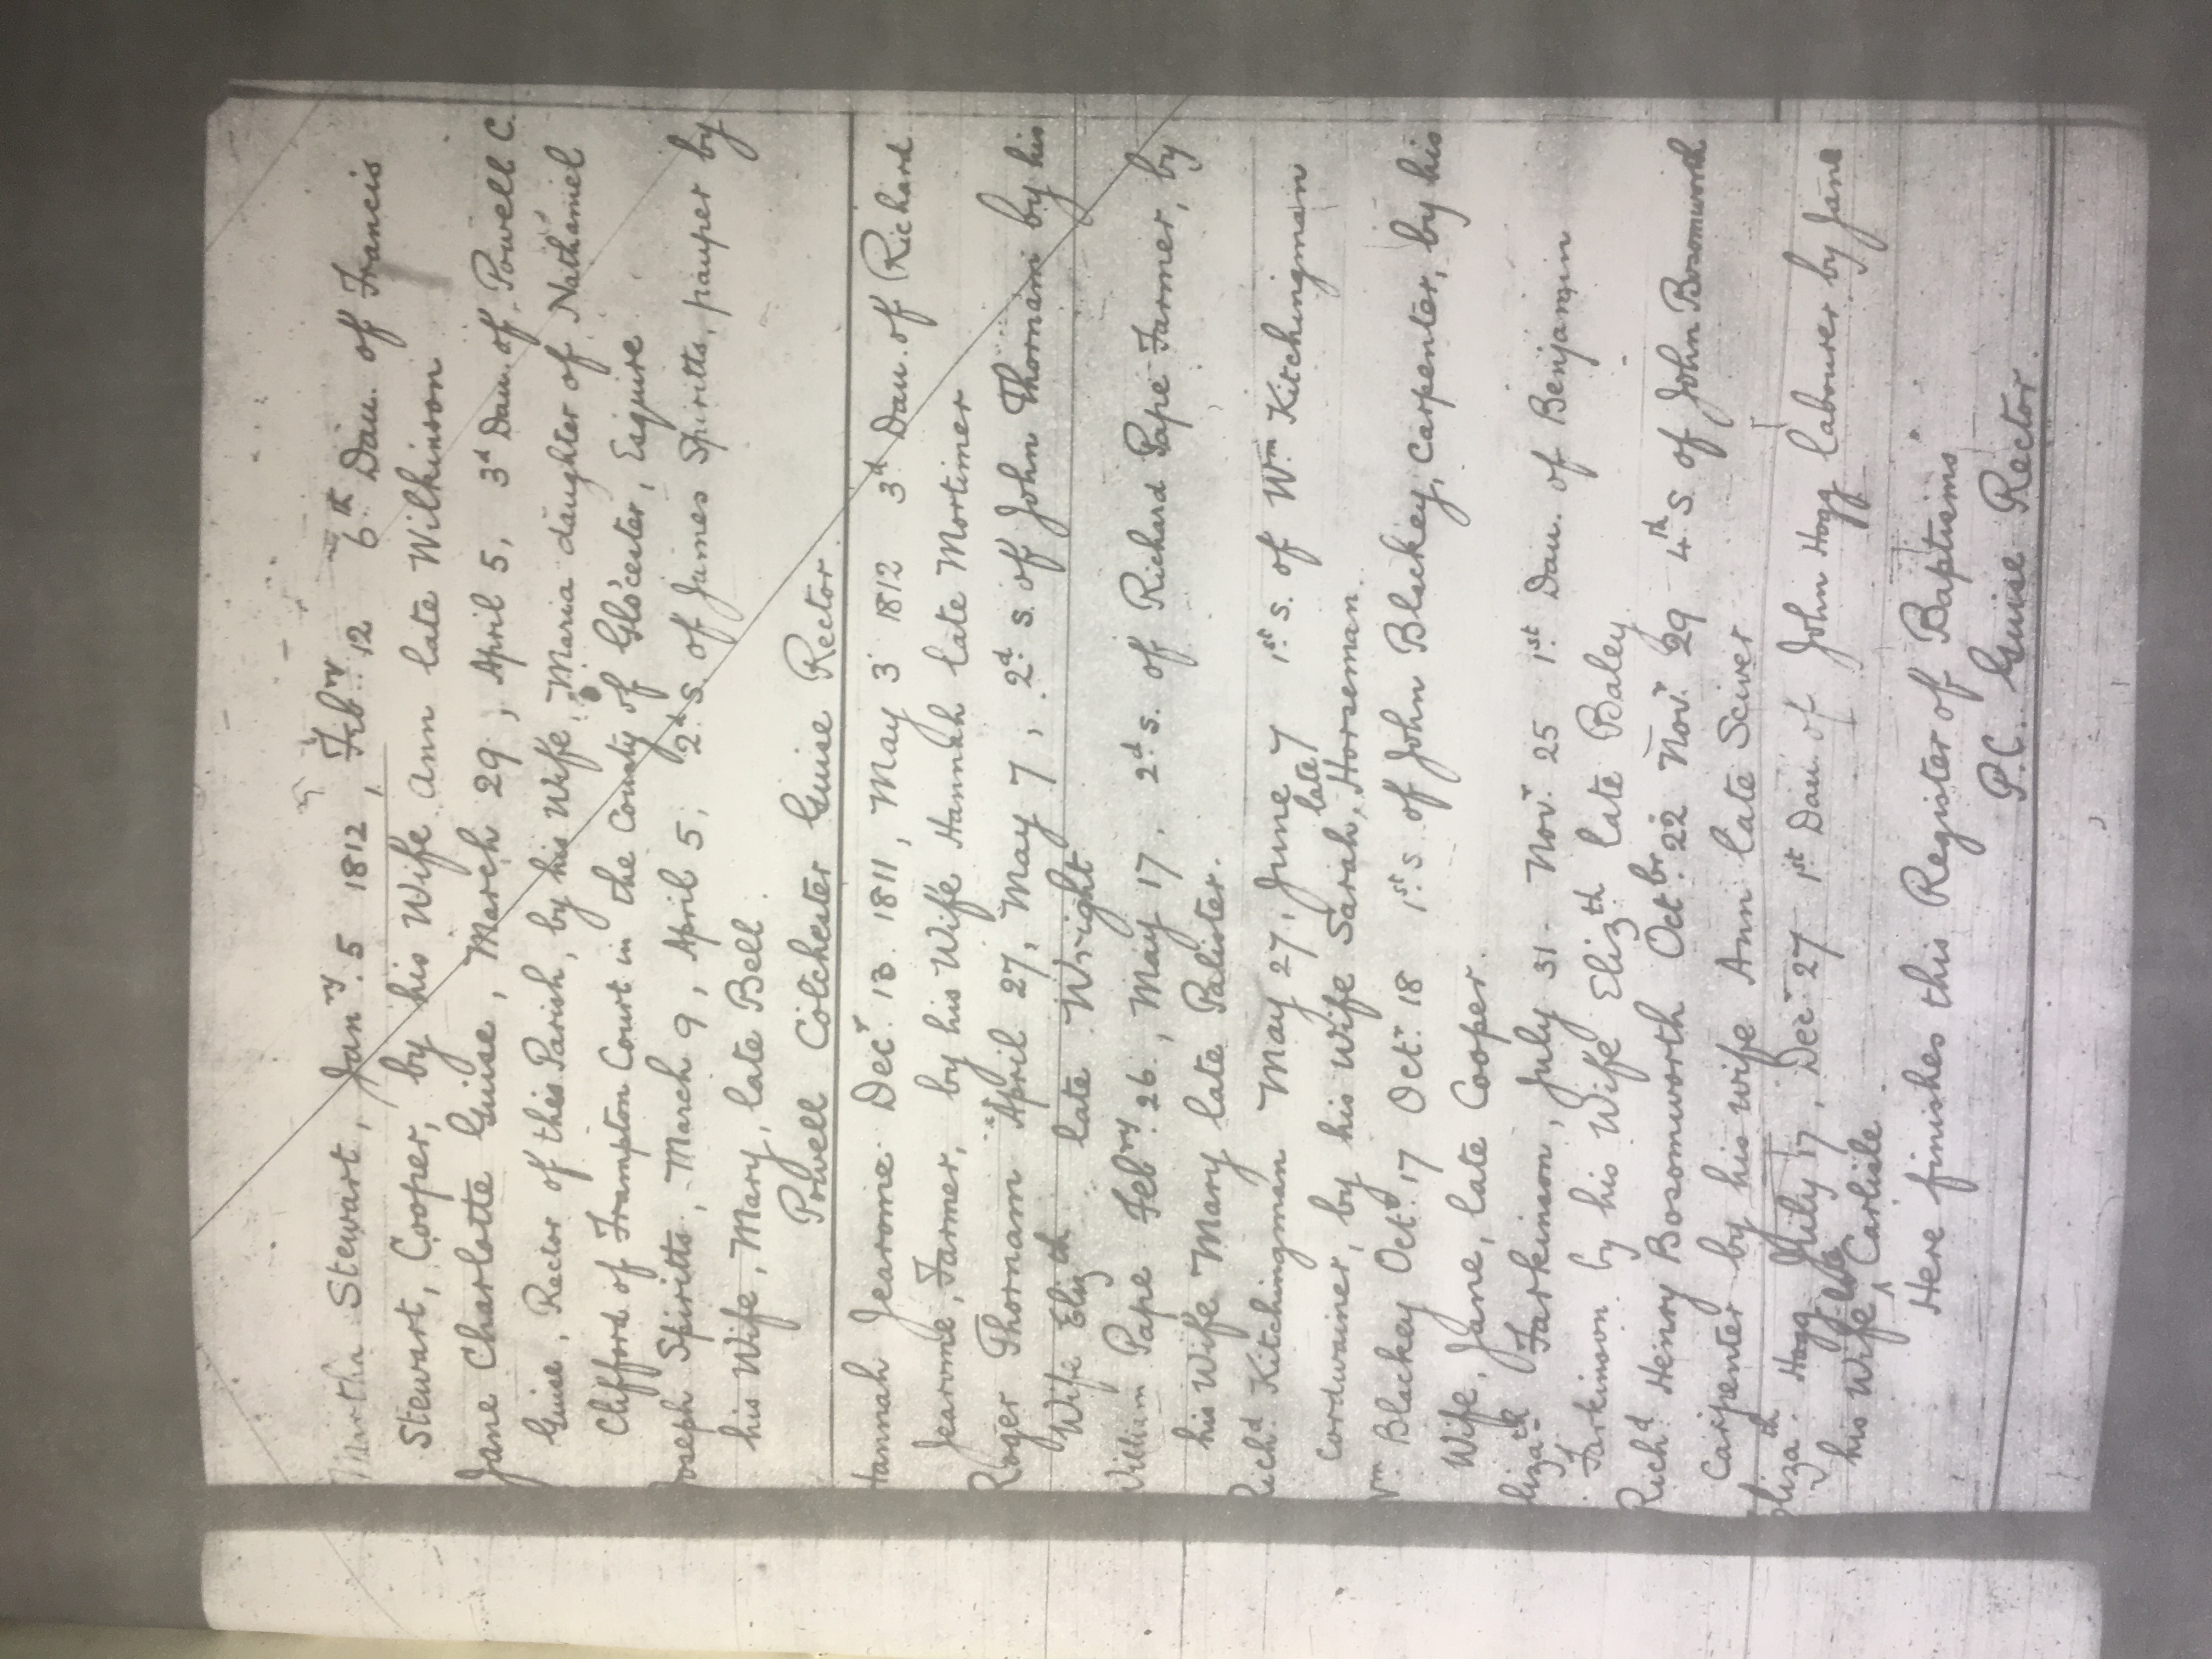 Martha Stewart, Janry. 5 1812, Febry. 12 6th Dau. of Francis
Stewart, Cooper, by his Wife Ann late Wilkinson
Jane Charlotte Guise, March 29, April 5, 3d Dau. of Powell C.
Guise, Rector of this Parish, by his Wife, Maria daughter of Nathaniel
Clifford of Frampton Court in the County of Glo'cester, Esquire
Joseph Spiritts, March 9, April 5, 2d. S. of James Spiritts, pauper by
his Wife, Mary, late Bell.
Powell Colchester Guise Rector
Hannah Jearome Decr. 13. 1811, May 3 1812 3d. Dau. of Richard
Jearome, Farmer, by his Wife Hannah late Mortimer
Roger Thornam April 27, May 7, 2d. S. of John Thornam by his
Wife Elizth late Wright
William Pape Febry. 26, May 17, 2d. S. of Richard Pape Farmer, by
his Wife Mary late Palister.
Richd. Kitchingman May 27, June 7 1st. S. of Wm Kitchingman
Cordwainer, by his Wife Sarah, late Horseman.
Wm. Blackey Octr. 17 Octr. 18 1st. S. of John Blackey, Carpenter, by his
Wife, Jane, late Cooper.
Elizath Farkinson, July 31. Novr. 25 1st. Dau. of Benjamin
Farkinson by his Wife Elizth late Baley
Richd. Henry Bosomworth Octbr. 22 Novr. 29 4th S. of John Bosomworth
Carpenter by his wife Ann late Sciver
Elizath. Hogg July 17, Decr 27 1st Dau. of John Hogg labourer by Jane
his Wife late Carlisle
Here finishes this Register of Baptisms
P.C. Guise Rector